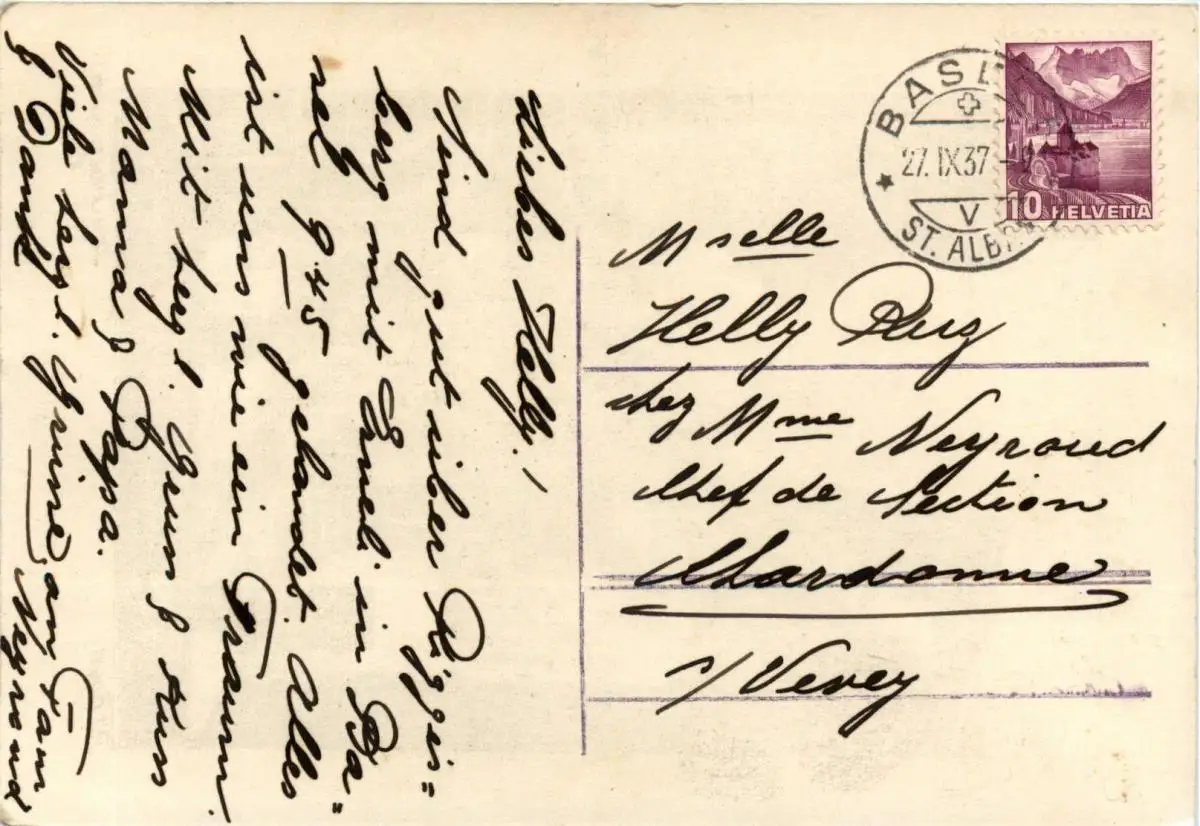 Liebes Helly!
Sind gut über Riggis=
berg mit Emel. in Ba=
sel 9.45 gelandet. Alles
ist uns wie ein Traum.
Mit herzl. Gruss & Kuss
Mamma & Papa.
Viele herzl. Grüsse am Fam
& Dank Neyroud
BASEL
27. IX 37
V
ST. ALB
10 HELVETIA
Mselle
Helly Ruz
chez Mme Neyroud
Chef de Section
Chardonne
s/Vevey